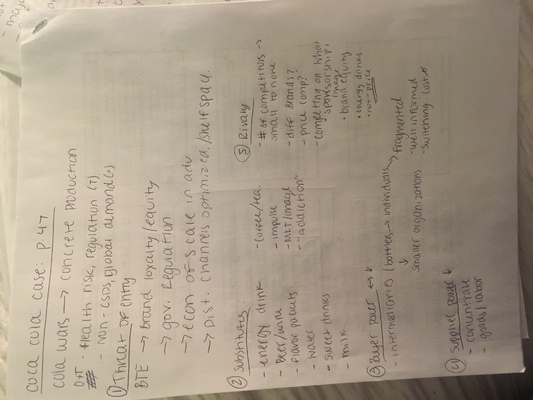 coca cola case: p.47
cola wars → concrete production
O+T - Health risk, regulation (T)
- non-CSDs, global demand (O)
① Threat of entry
BTE → brand loyalty/equity
→ gov. Regulation
→ econ of scale in adv
→ Dist. channels optimized/shelf space.
② Substitutes
- energy drink
- Beer/wine
- flavor packets
- water
- sweet drinks
- milk
- coffee/tea
- impulse
- MKT/image
- "addiction"
③ Buyer power ↔ ↓
- intermediaries (bottlers → individuals) → fragmented
↓
smaller organizations
"well informed
- switching cost
④ Supplier power ↓
- concentrate
- goods/labor
⑤ Rivalry
- # of competitors →
small to none
- diff Brands?
- price comp?
- competing on what
• sponsorships
• image
• brand equity
• energy drinks
• non-price